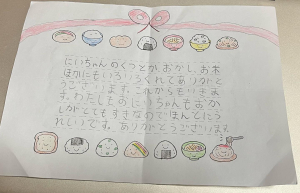 にいちゃんのくつとか、おかし、お木
ほかにもいろいろくれてありがと
うございます。これからもいきま
す。わたしものにいちゃんもおか
しがとてもすきなのでほんとにう
れしいです。ありがとうございます